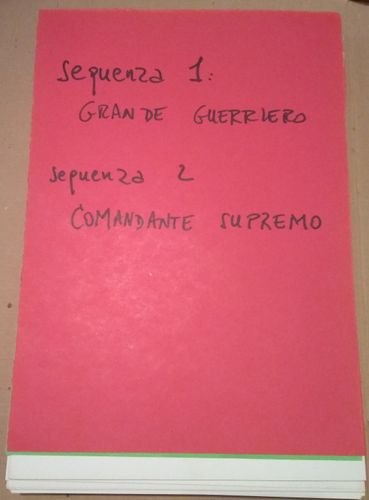 Sequenza 1:
GRANDE GUERRIERO
Sequenza 2
COMANDANTE SUPREMO